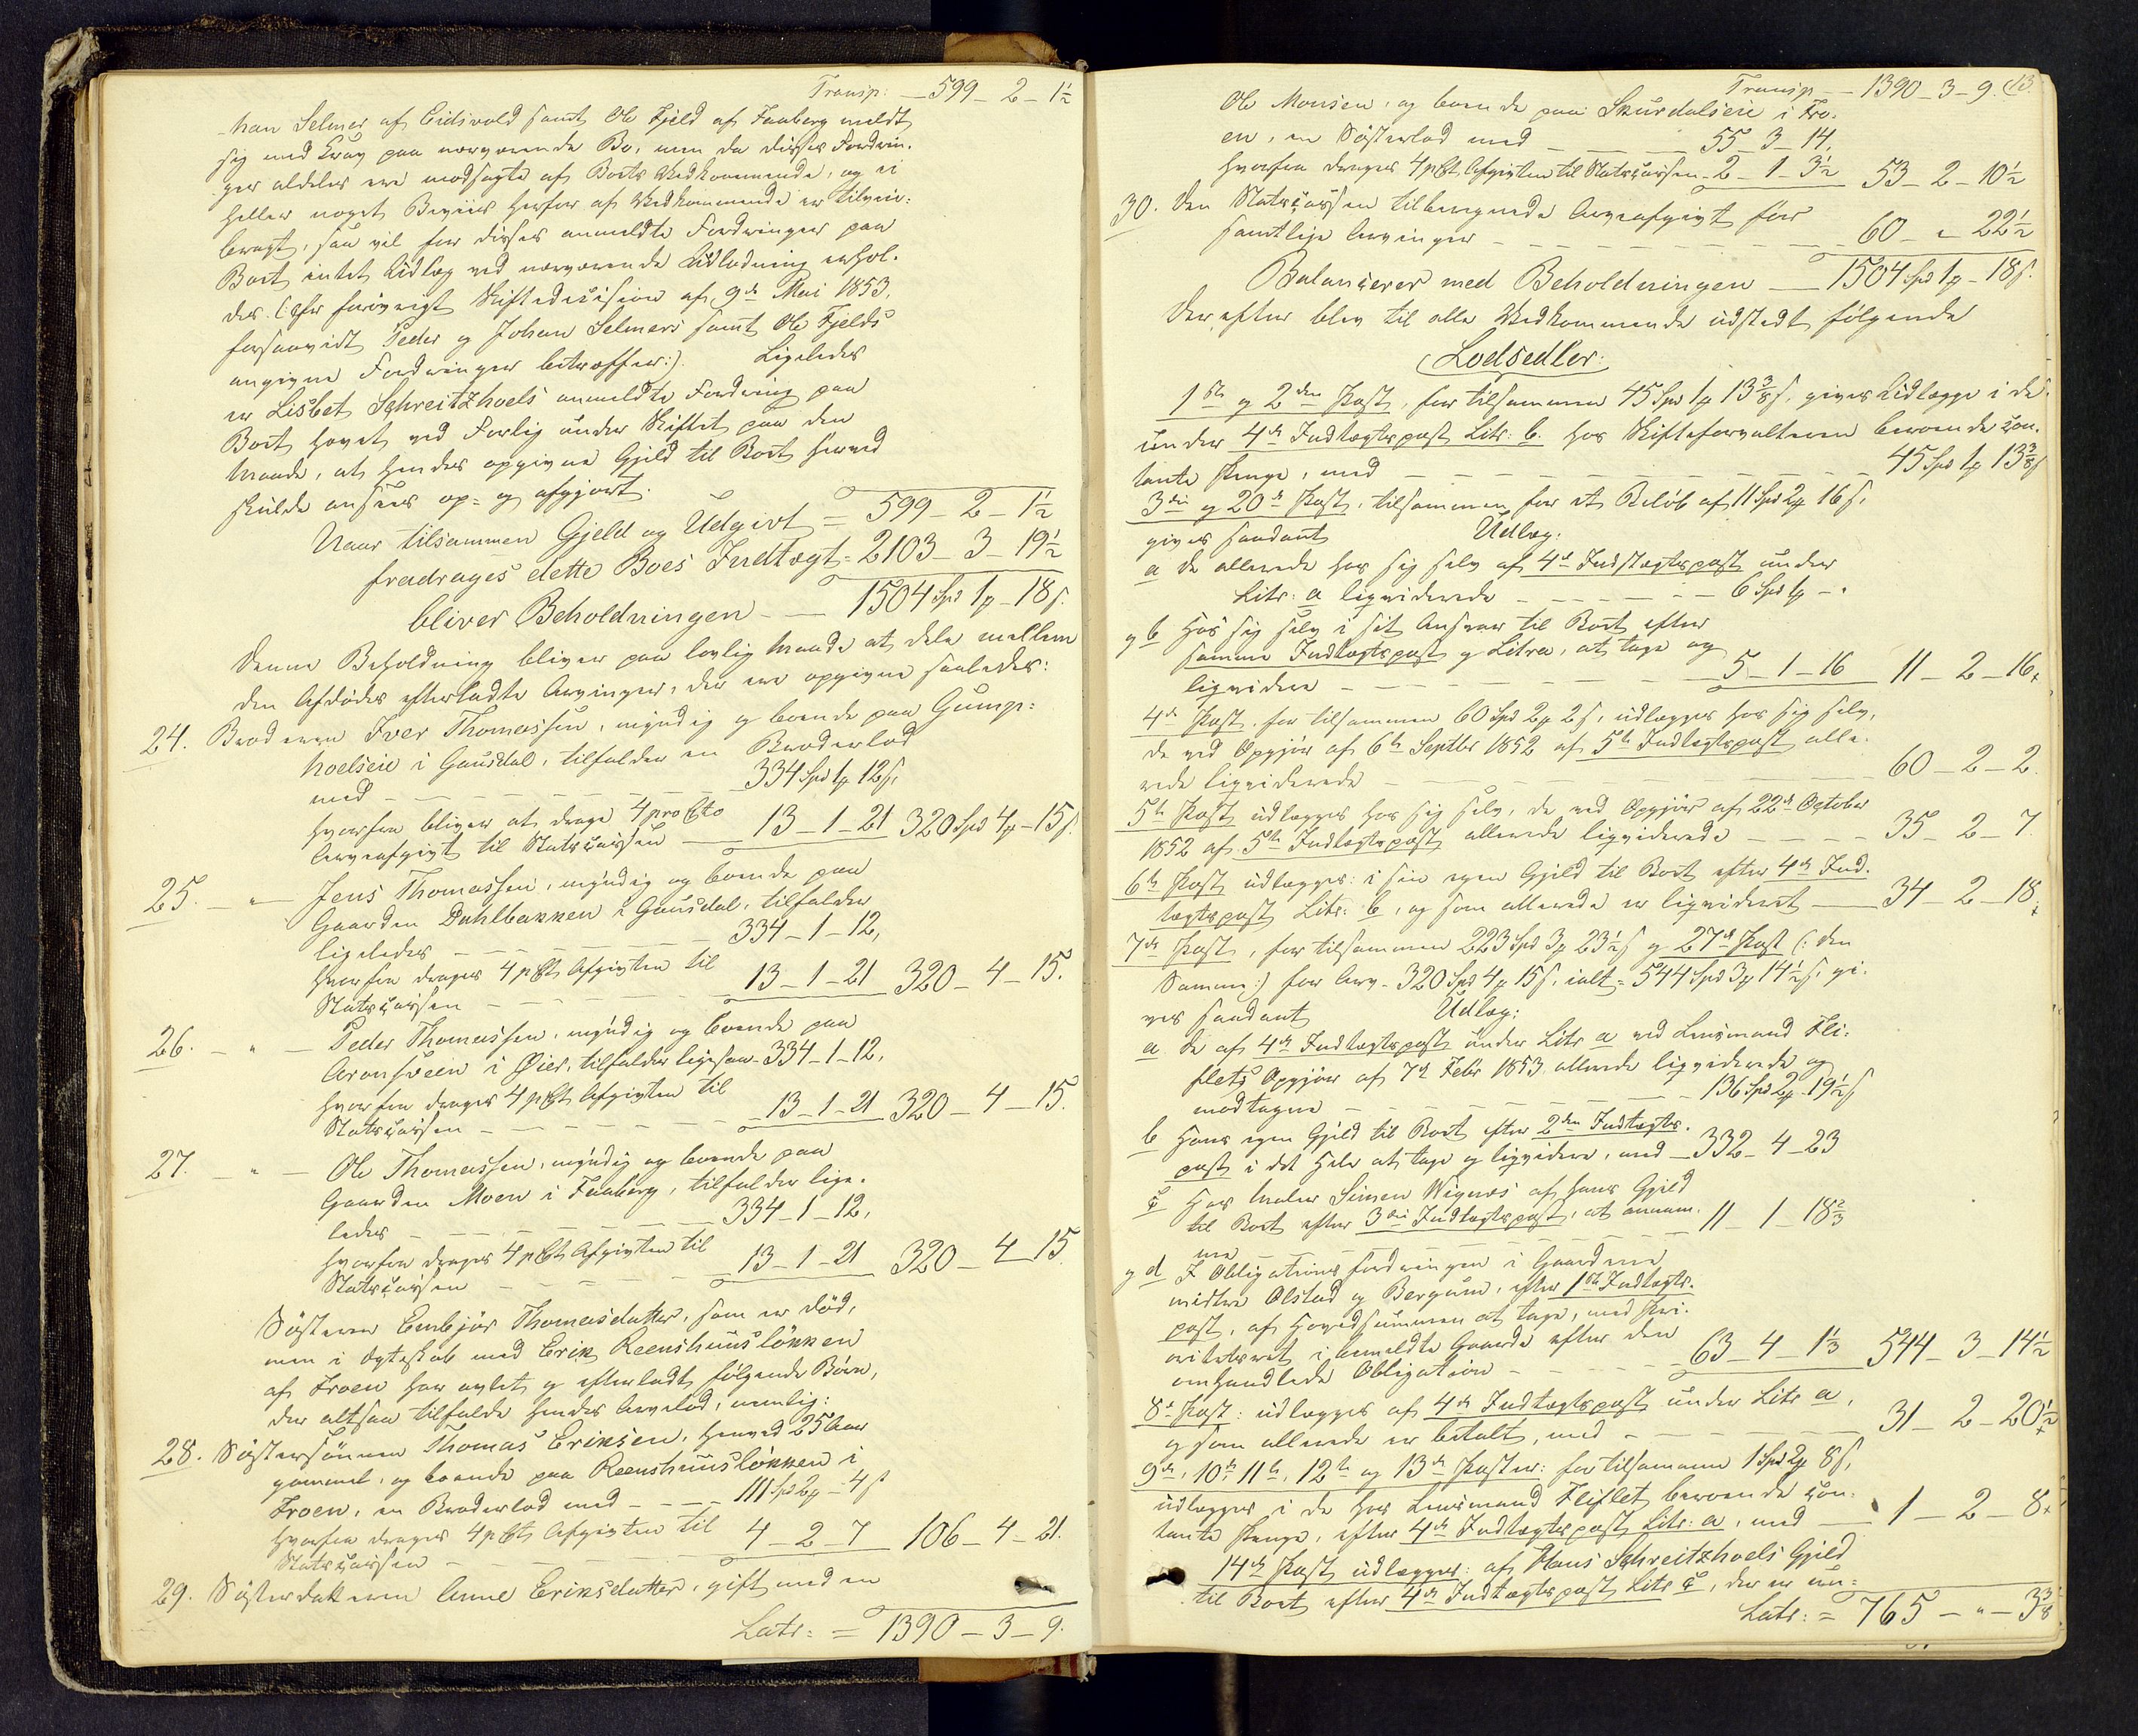 Transp: — 599 - 2 - 1½
han Selmer af Eidsvold samt Ole Fjeld af Faaberg meldt
sig med Krav paa nærværende Bo, men da disses Fordrin-
ger aldeles ere modsagte af Boets Vedkommende, og ei
heller noget Beviis herfor af Vedkommende er tilveie-
bragt, saa vil for disses anmeldte Fordringer paa
Boet intet Udlæg ved nærværende Udlodning erhol-
des. (: cfr forøvrigt Skiftedecision af 9de Mai 1853,
forsaavidt Peder og Johan Selmers samt Ole Fjelds
angivne Fordringer betræffer:). Ligeledes
er Lisbet Schreitzhoels anmeldte Fordring paa
Boet hævet ved Forlig under Skiftet paa den
Maade, at hendes opgivne Gjeld til Boet herved
skulde ansees op- og afgjort.
Naar tilsammen Gjeld og Udgivt = 599 - 2 - 1½
fradrages dette Boes Indtægt = 2103 - 3 - 19½
bliver Beholdningen — 1504 Spd 1 ₰ - 18 s.
Denne Beholdning bliver paa lovlig Maade at dele mellem
den Afdødes efterladte Arvinger, der ere opgivne saaledes:
24. Broderen Iver Thomassen, myndig og boende paa Gump-
hoelseie i Gausdal, tilfalder en Broderlod
med — 334 Spd 1 ₰ 12 s,
hvorfra bliver at drage 4 pro Cto
Arveafgivt til Statscassen — 13 - 1 - 21 320 Spd 4 ₰ - 15 s.
25. — " — Jens Thomassen, myndig og boende paa
Gaarden Dahlbakken i Gausdal, tilfalder
ligeledes — 334 - 1 - 12,
hvorfra drages 4 pCt Afgivten til
Statscassen — 13 - 1 - 21 320 - 4 - 15.
26. — " — Peder Thomassen, myndig og boende paa
Aronsveen i Øier, tilfalder ligesaa - 334 - 1 - 12,
hvorfra drages 4 pCt Afgivten til
Statscassen — 13 - 1 - 21 320 - 4 - 15.
27. — " — Ole Thomassen, myndig og boende paa
Gaarden Moen i Faaberg, tilfalder lige-
ledes — 334 - 1 - 12,
hvorfra drages 4 pCt Afgivten til
Statscassen — 13 - 1 - 21 320 - 4 - 15
Søsteren Embjør Thomasdatter, som er død,
men i Ægteskab med Erik Reenshuusløkken
af Froen har avlet og efterladt følgende Børn,
der altsaa tilfalde hendes Arvelod, nemlig:
28. Søstersønnen Thomas Eriksen, henved 25 Aar
gammel, og boende paa Reenshuusløkken i
Froen, en Broderlod med — 111 Spd 2 ₰ - 4 s
hvorfra drages 4 pCt Afgivten til
Statscassen — 4 - 2 - 7 106 - 4 - 21.
29. Søsterdatteren Anne Eriksdatter, gift med en
Latr: = 1390 - 3 - 9.
Transp — 1390 - 3 - 9. 13.
Ole Monsen, og boende paa Skurdalseie i Fro-
en, en Søsterlod med — 55 - 3 - 14,
hvorfra drages 4 pCt Afgivten til Statscassen - 2 - 1 - 3½ 53 - 2 - 10½
30. Den Statscassen tilberegnede Arveafgivt for
samtlige Arvinger — 60 - " 22½
Balancerer med Beholdningen — 1504 Spd 1 ₰ - 18 s.
Derefter blev til alle Vedkommende udstedt følgende
Lodsedler:
1ste og 2den Post, for tilsammen 45 Spd 1 ₰ 13⅜ s, gives Udlægge i de
under 4de Indtægtspost Litr: b. hos Skifteforvalteren beroende con-
tante Penge, med — 45 Spd 1 ₰ 13⅜ s
3die og 20de Post, tilsammen for et Beløb af 11 Spd 2 ₰ 16 s,
gives saadant Udlæg:
a de allerede hos sig selv af 4de Indtægtspost under
Litr: a liqviderede — 6 Spd 1 ₰ - "
og b Hos sig selv i sit Ansvar til Boet efter
samme Indtægtspost og Litra, at tage og
liqvidere — 5 - 1 - 16 11 - 2 - 16.
4de Post. for tilsammen 60 Spd 2 ₰ 2 s, udlægges hos sig selv,
de ved Opgjør af 6te Septbr 1852 af 5te Indtægtspost alle-
rede liqviderede — 60 - 2 - 2.
5te Post udlægges hos sig selv, de ved Opgjør af 22de October
1852 af 5te Indtægtspost allerede liqviderede — 35 - 2 - 7.
6te Post udlægges: i sin egen Gjeld til Boet efter 4de Ind-
tægtspost Litr: b, og som allerede er liqvideret — 34 - 2 - 18.
7de Post, for tilsammen 223 Spd 3 ₰ 23½ s og 27de Post (: den
Samme :) for Arv - 320 Spd 4 ₰ 15 s, ialt = 544 Spd 3 ₰ 14½ s, gi-
ves saadant Udlæg:
a De af 4de Indtægtspost under Litr a ved Lensmand Fli-
flets Opgjør af 7de Febr 1853 allerede liqviderede og
modtagne — 136 Spd 2 ₰ - 19½ s
b Hans egen Gjeld til Boet efter 2den Indtægts-
post i det Hele at tage og liqvidere, med - 332 - 4 - 23
c Hos Maler Simen Wignæs af hans Gjeld
til Boet efter 3die Indtægtspost, at annam-
me — 11 - 1 - 18⅔
og d I Obligationsfordringen i Gaardene
midtre Olstad og Bergum, efter 1ste Indtægts-
post, af Hovedsummen at tage, med Pri-
oritetsret i bemeldte Gaarde efter den
omhandlede Obligation — 63 - 4 - 1⅓ 544 - 3 - 14½
8de Post: udlægges af 4de Indtægtspost under Litr a,
og som allerede er betalt, med — 31 - 2 - 20½
9de, 10de 11te, 12te og 13de Poster: for tilsammen 1 Spd 2 ₰ 8 s,
udlægges i de hos Lensmand Fliflet beroende con-
tante Penge, efter 4de Indtægtspost Litr: a, med — 1 - 2 - 8.
14de Post udlægges: af Hans Schreitzhoels Gjeld
til Boet efter 4de Indtægtspost Litr c, der er un-
Latr: = 765 - " - 3⅜